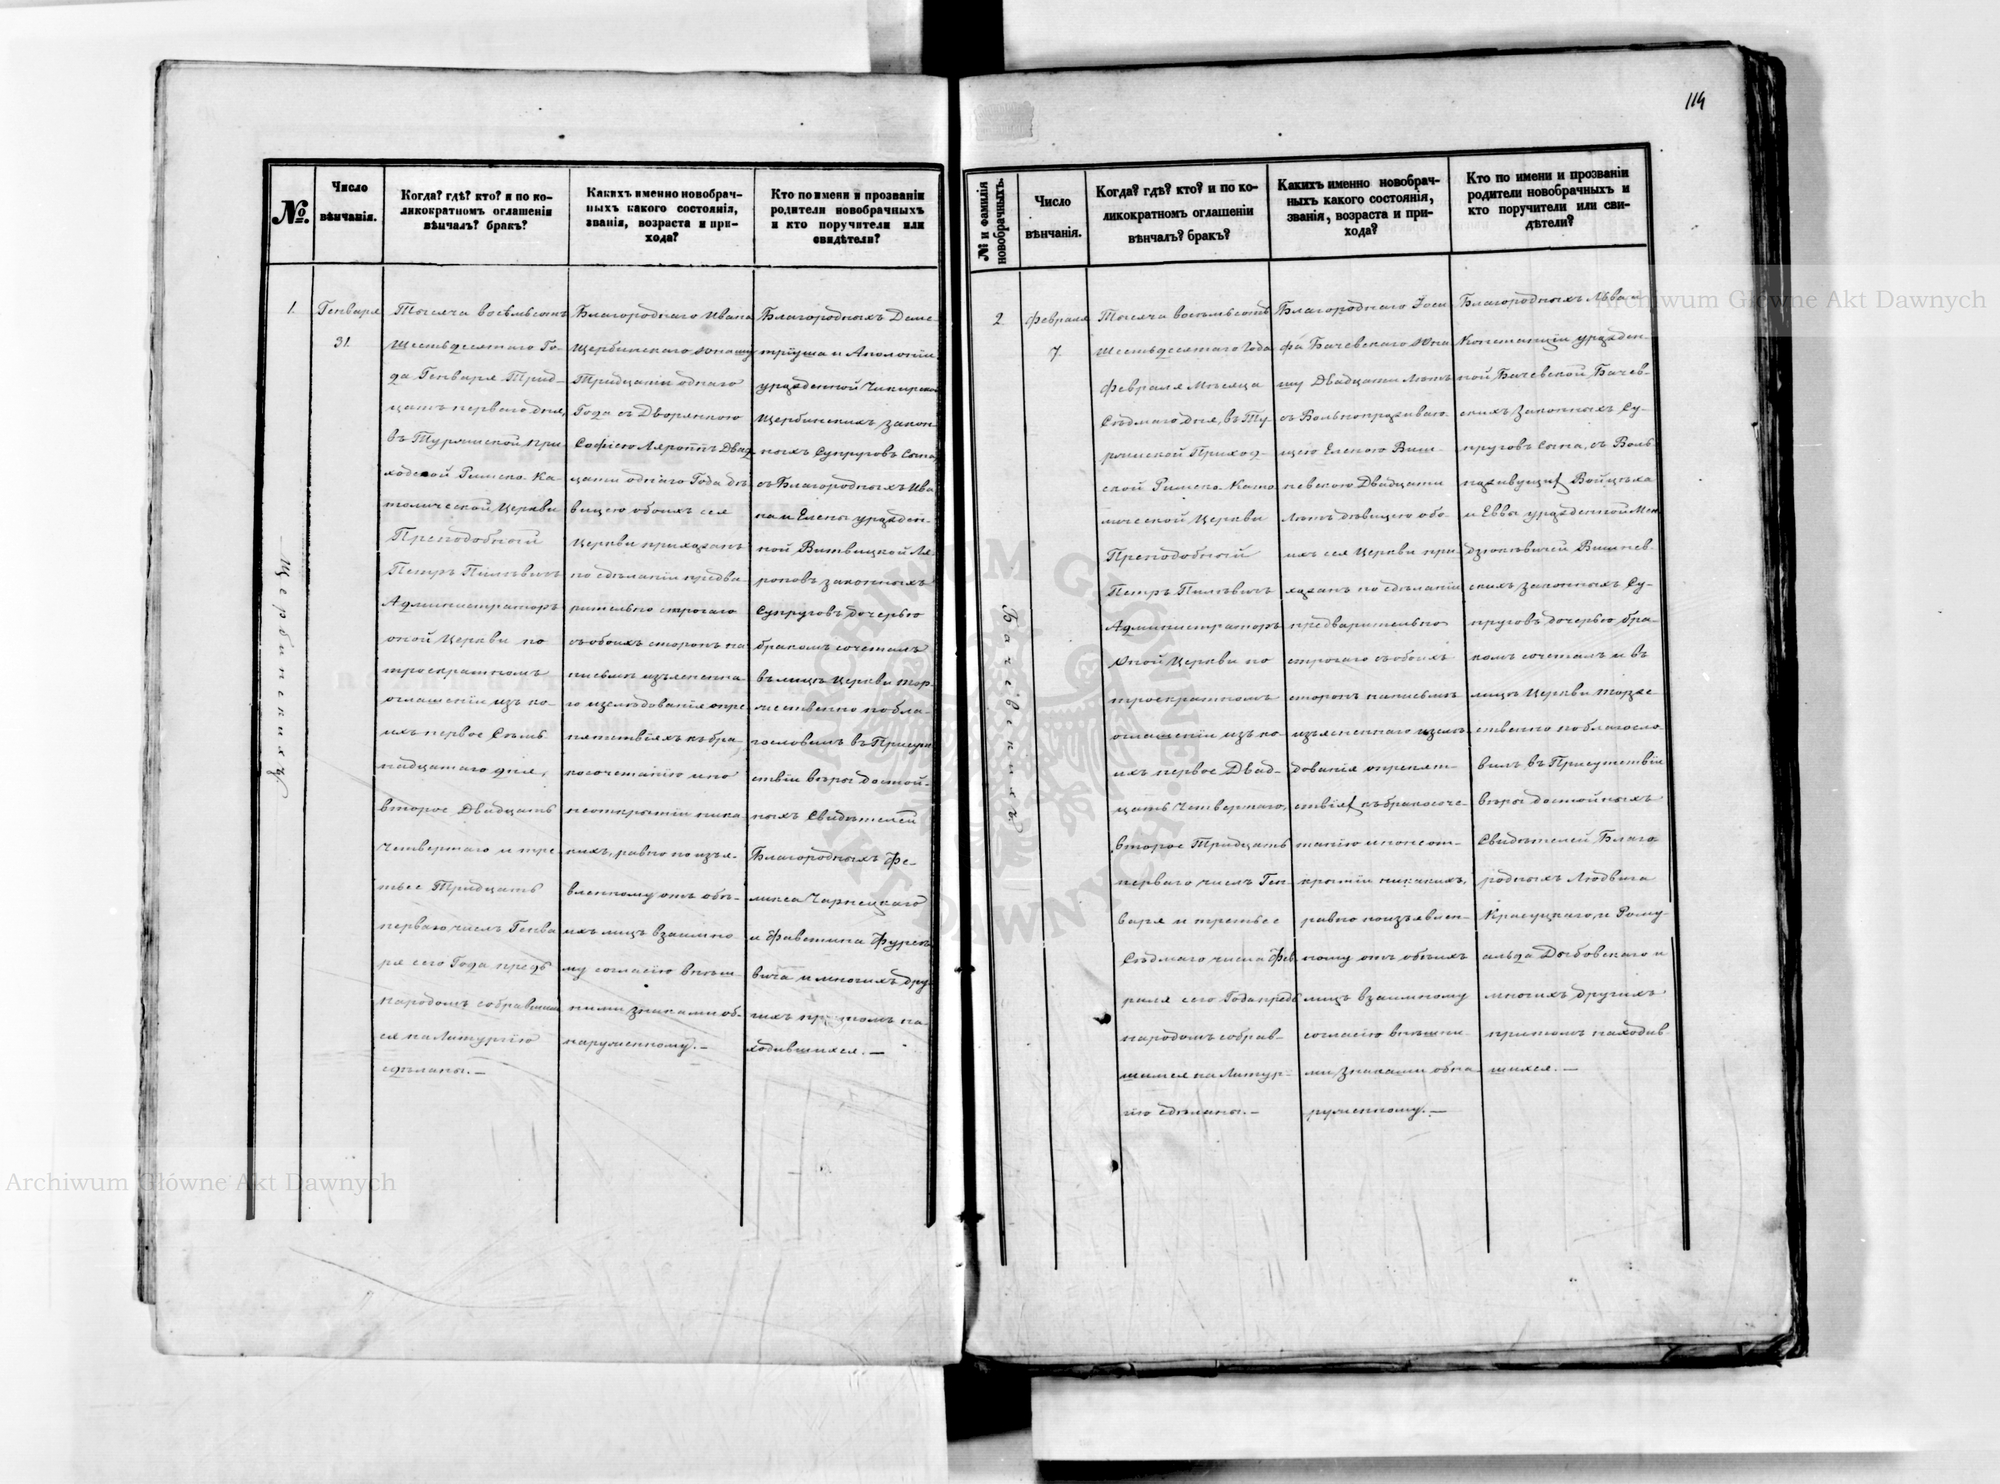 114
№.
Число
вѣнчанія.
Когда? гдѣ? кто? и по ко-
ликократномъ оглашеніи
вѣнчалъ? бракъ?
Какихъ именно новобрач-
ныхъ какого состоянія,
званія, возраста и при-
хода?
Кто по имени и прозваніи
родители новобрачныхъ
и кто поручители или
свидѣтели?
1.
Щербинскихъ
Генваря
31.
Тысяча восемьсотъ
Шестьдесятаго Го-
да Генваря Трид-
цать перваго дня,
въ Турянской При-
ходской Римско-Ка
толической Церкви
Преподобный
Петръ
Администраторъ
оной Церкви по
троекратномъ
оглашеніи изъ ко-
ихъ первое Семь
надцатаго дня,
второе Двадцать
Четвертаго и тре-
тье Тридцать
перваго числъ Генва
ря сего Года предъ
народомъ собравшим
ся на Литургію
сдѣланы.—
Благороднаго Ивана
Щербинскаго юношу
Тридцати однаго
Года съ Дворянкою
Софіею Двад
цати однаго Года дѣ
вицею обоихъ сея
Церкви прихожанъ
по сдѣланіи предва-
рительно строгаго
съ обоихъ сторонъ на
письмѣ изъясненна-
го изслѣдованія опре
пятствіяхъ къ бра
косочетанію и по
неоткрытіи ника-
кихъ, равно по изъя-
вленному отъ обѣ-
ихъ лицъ взаимно-
му согласію внѣш-
ними знаками об-
наруженному.—
Благородныхъ Деме
тріуша и Аполоніи
урожденной
Щербинскихъ закон
ныхъ Супруговъ Сына,
съ Благородныхъ Ива
на и Елены урожден-
ной Витвицкой Ля-
роповъ законныхъ
Супруговъ дочерью
бракомъ сочеталъ
въ лицѣ Церкви тор-
жественно побла-
гословилъ въ Присут
ствіи вѣры достой-
ныхъ Свидѣтелей
Благородныхъ Фе-
ликса Чарнецкаго
и Фавстина
вича и многихъ дру
гихъ притомъ на-
ходившихся.—
№ и фамилія
новобрачныхъ.
Число
вѣнчанія.
Когда? гдѣ? кто? и по ко-
ликократномъ оглашеніи
вѣнчалъ? бракъ?
Какихъ именно новобрач-
ныхъ какого состоянія,
званія, возраста и при-
хода?
Кто по имени и прозваніи
родители новобрачныхъ и
кто поручители или сви-
дѣтели?
2
Бачевскихъ
Февраля
7.
Тысяча восемьсотъ
Шестьдесятаго Года
Февраля Мѣсяца
Седмаго дня, въ Ту-
рянской Приход-
ской Римско-Като
лической Церкви
Преподобный
Петръ
Администраторъ
Оной Церкви по
троекратномъ
оглашеніи изъ ко-
ихъ первое Двад-
цать Четвертаго,
второе Тридцать
перваго, числъ Ген-
варя и третье
Седмаго числа Фев
раля сего Года предъ
народомъ собрав-
шимся на Литур-
гію сдѣланы.—
Благороднаго Іоси
фа Бачевскаго Юно
шу Двадцати Лѣтъ
съ Вольнопроживаю-
щею Еленою Виш-
невскою Двадцати
Лѣтъ дѣвицею обо-
ихъ сея Церкви при-
хожанъ по сдѣланіи
предварительно
строгаго съ обоихъ
сторонъ на письмѣ
изъясненнаго изслѣ-
дованія опрепят-
ствіях къ бракосоче-
танію и по неот-
крытіи никакихъ,
равно по изъявлен-
ному отъ обѣихъ
лицъ взаимному
согласію внѣшни-
ми знаками обна-
руженному.—
Благородныхъ Льва и
Констанціи урожден-
ной Бачевской Бачев-
скихъ законныхъ Су-
пруговъ Сына, съ Воль
ноживущих Войцѣха
и Еввы урожденной
Вишнев-
скихъ законныхъ Су-
пруговъ дочерью бра-
комъ сочеталъ и въ
лицѣ Церкви торже-
ственно поблагосло-
вилъ въ Присутствіи
вѣры достойныхъ
Свидѣтелей Благо-
родныхъ Людвига
Красуцкаго, и Рому-
альда Домбовскаго и
многихъ другихъ
притомъ находив-
шихся.—
Archiwum Główne Akt Dawnych
Archiwum Główne Akt Dawnych
ARCHIWUM GŁÓWNE AKT DAWNYCH